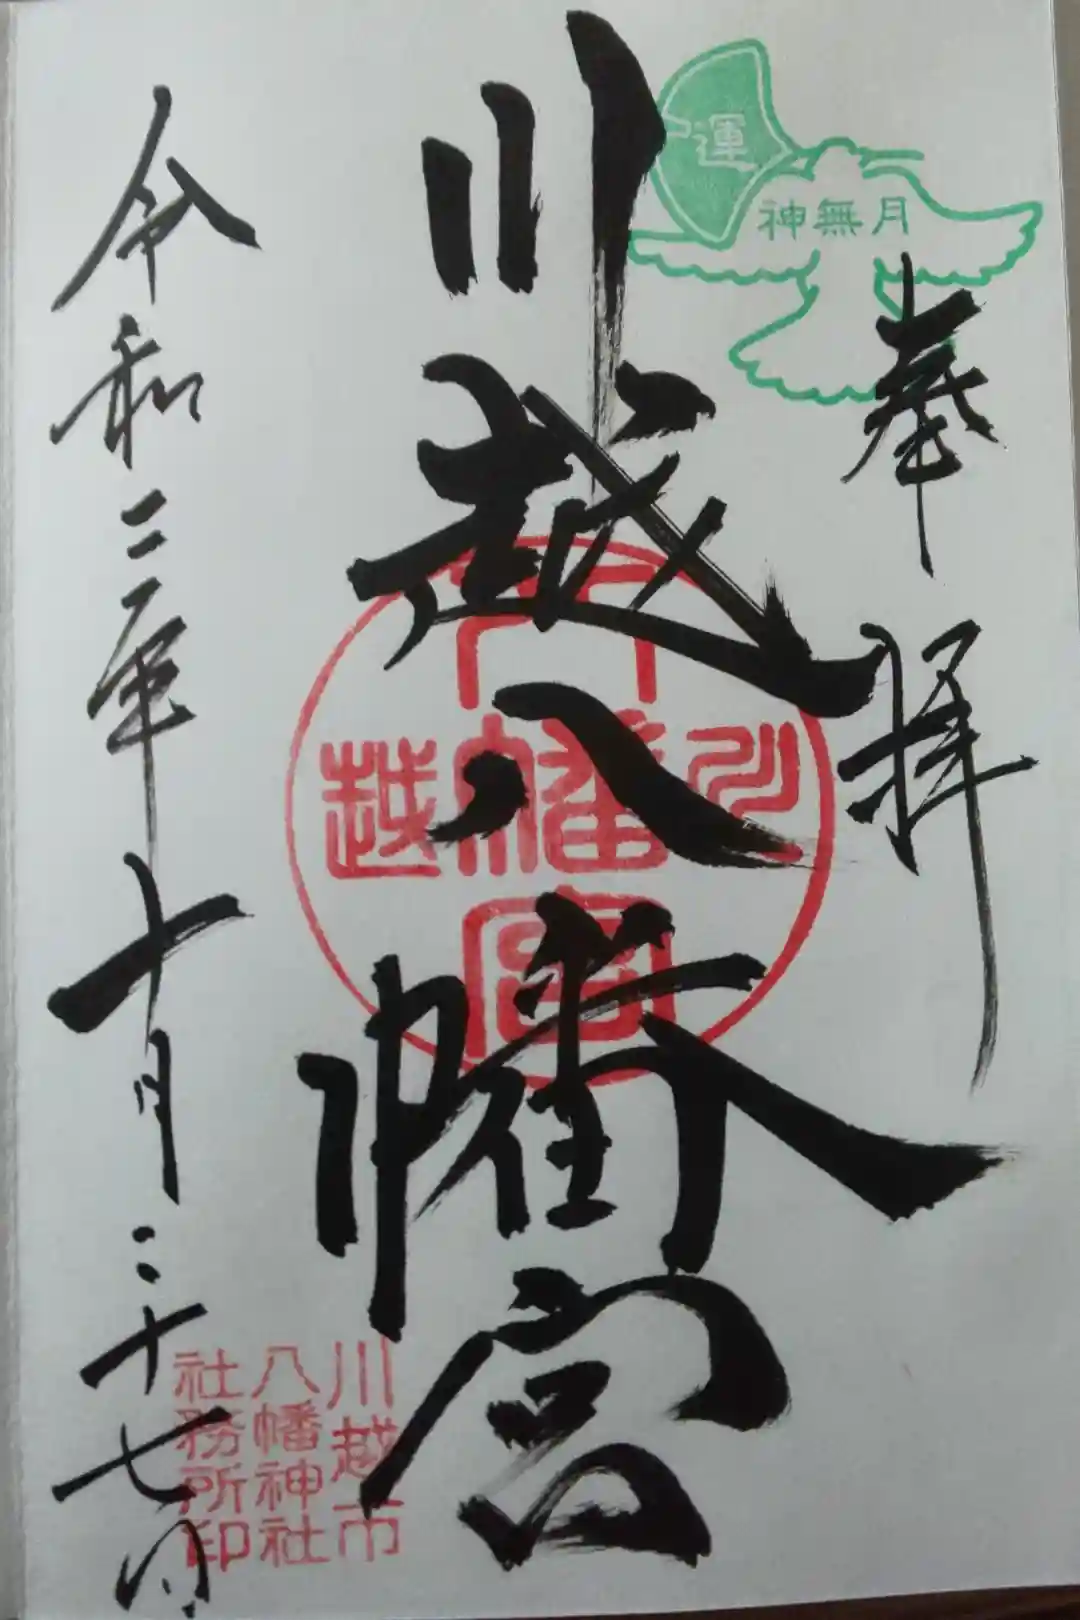 運
神無月
奉拝
川越八幡宮
八
川幡越
宮
令和二年十月二十七日
川越市
八幡神社
社務所印